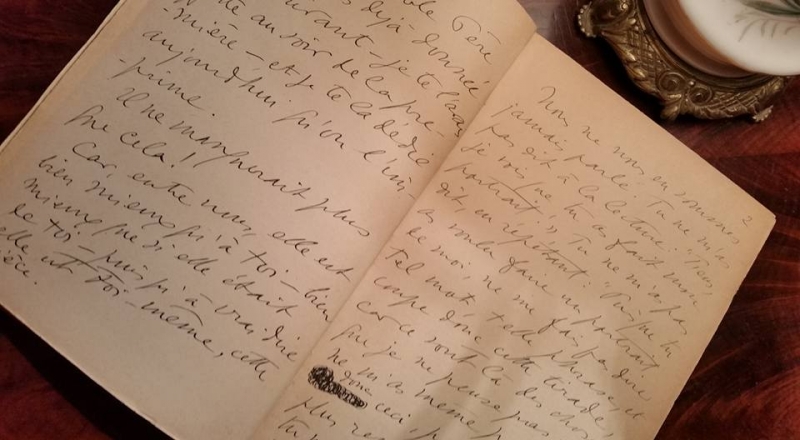 Père
déjà donnée
— je te l'avais
au soir de la pre-
-mière — et je te la dédie
aujourd'hui qu'on l'im-
-prime.
Il ne manquerait plus
que cela !
Car, entre nous, elle est
bien mieux qu'à toi — bien
mieux que si elle était
de toi — puisqu'à vrai dire
elle est toi-même, cette
2
Nous ne nous en sommes
jamais parlé. Tu ne m'as
pas dit à la lecture : "Tiens,
je vois que tu as fait mon
portrait." Tu ne m'as pas
dit, en répétant : "Puisque tu
as voulu faire un portrait
de moi, ne me fais pas dire
tel mot, telle phrase, et
coupe donc cette tirade,
car ce sont là des
que je ne pense pas
ne m'as même
donc ceci,
plus